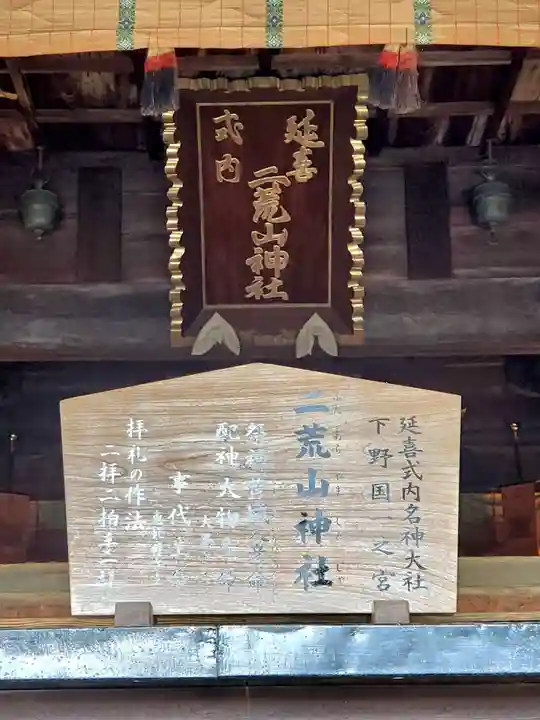 延喜
式内
二荒山神社
延喜式内名神大社
下野国一之宮
ふたあらやまじんじゃ
二荒山神社
配神 大物主命
事代主命
拝礼の作法
二拝二拍手一拝